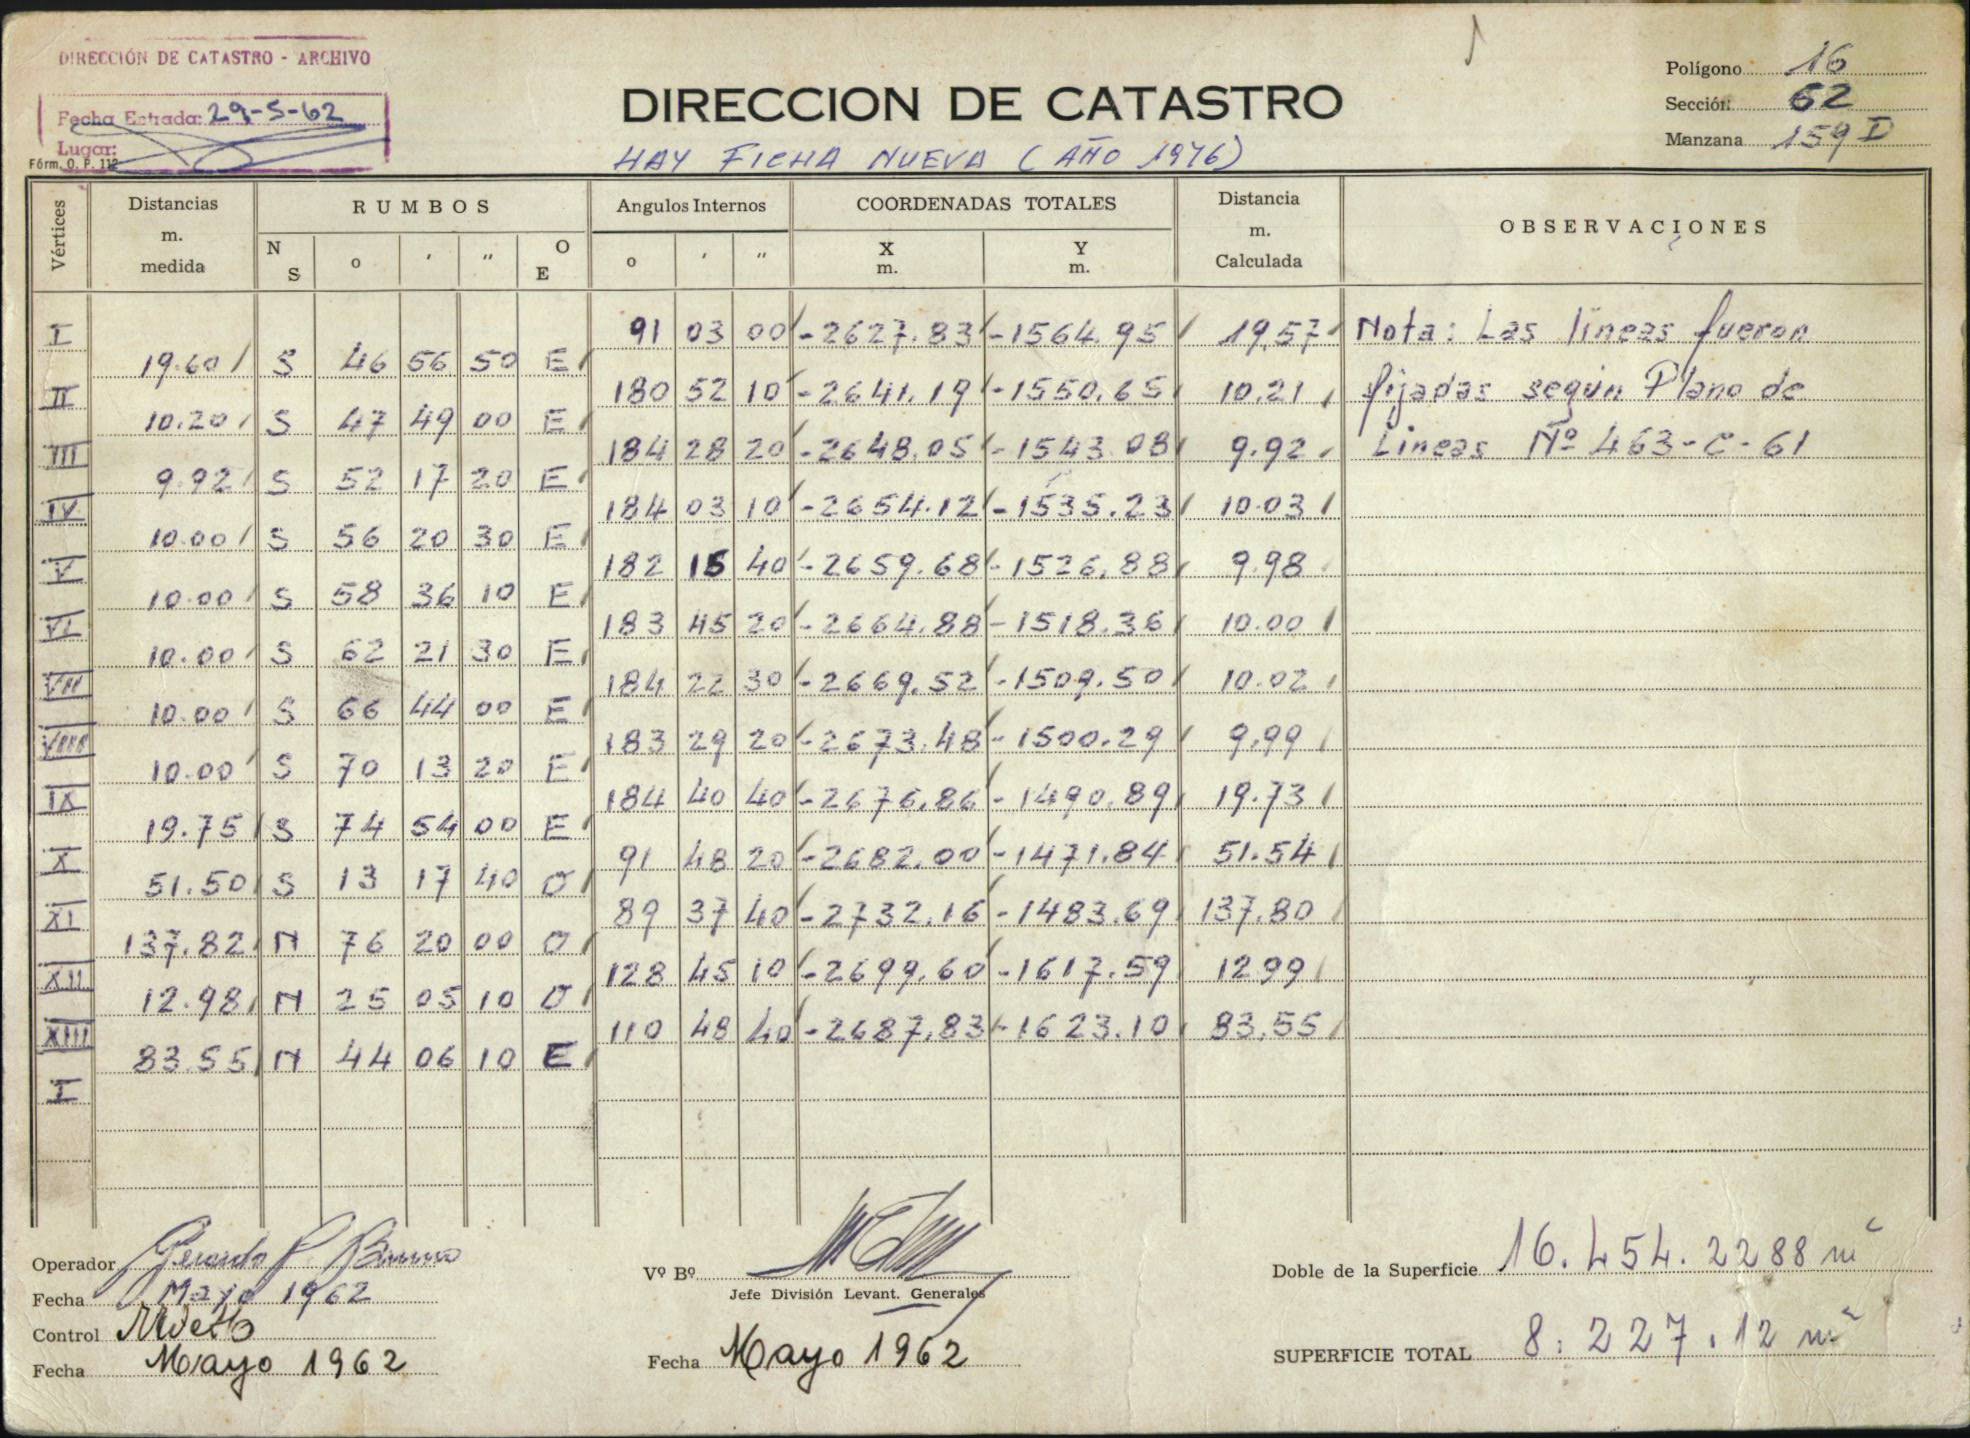 DIRECCIÓN DE CATASTRO - ARCHIVO
Fecha Entrada: 29-5-62
Lugar:
Fórm. O. P. 112
DIRECCION DE CATASTRO
HAY FICHA NUEVA (AÑO 1976)
Polígono 16
Sección: 62
Manzana 159 I
Vértices Distancias m. medida RUMBOS Angulos Internos COORDENADAS TOTALES Distancia m. Calculada OBSERVACIONES
N S o ' " O E o ' " X m. Y m.
I 91 03 00 -2627.83 -1564.95 19.57 Nota: Las líneas fueron
19.60 S 46 56 50 E
II 180 52 10 -2641.19 -1550.65 10.21 fijadas según Plano de
10.20 S 47 49 00 E
III 184 28 20 -2648.05 -1543.08 9.92 Lineas Nº 463-C-61
9.92 S 52 17 20 E
IV 184 03 10 -2654.12 -1535.23 10.03
10.00 S 56 20 30 E
V 182 15 40 -2659.68 -1526.88 9.98
10.00 S 58 36 10 E
VI 183 45 20 -2664.88 -1518.36 10.00
10.00 S 62 21 30 E
VII 184 22 30 -2669.52 -1509.50 10.02
10.00 S 66 44 00 E
VIII 183 29 20 -2673.48 -1500.29 9.99
10.00 S 70 13 20 E
IX 184 40 40 -2676.86 -1490.89 19.73
19.75 S 74 54 00 E
X 91 48 20 -2682.00 -1471.84 51.54
51.50 S 13 17 40 O
XI 89 37 40 -2732.16 -1483.69 137.80
137.82 N 76 20 00 O
XII 128 45 10 -2699.60 -1617.59 12.99
12.98 N 25 05 10 O
XIII 110 48 40 -2687.83 -1623.10 83.55
83.55 N 44 06 10 E
I
Operador Gerardo P.
Fecha Mayo 1962
Control
Fecha Mayo 1962
Vº Bº
Jefe División Levant. Generales
Fecha Mayo 1962
Doble de la Superficie 16.454.2288 m²
SUPERFICIE TOTAL 8.227.12 m²